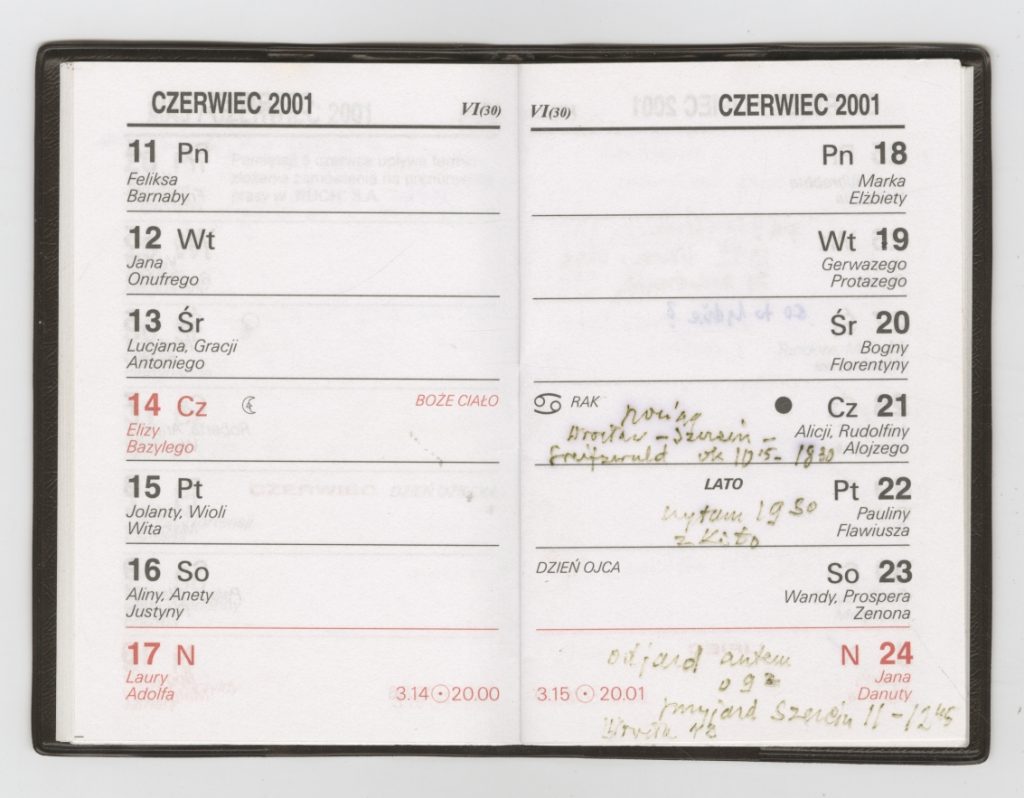 CZERWIEC 2001
VI(30)
11 Pn
Feliksa
Barnaby
12 Wt
Jana
Onufrego
13 Śr
Lucjana, Gracji
Antoniego
14 Cz
BOŻE CIAŁO
Elizy
Bazylego
15 Pt
Jolanty, Wioli
Wita
16 So
Aliny, Anety
Justyny
17 N
Laury
Adolfa
3.14 20.00
VI(30)
CZERWIEC 2001
Pn 18
Marka
Elżbiety
Wt 19
Gerwazego
Protazego
Śr 20
Bogny
Florentyny
RAK
Cz 21
Alicji, Rudolfiny
Alojzego
pociąg
Wrocław - Szczecin -
Greifswald ok 10 15 - 18 30
LATO
Pt 22
Pauliny
Flawiusza
19 30
z
DZIEŃ OJCA
So 23
Wandy, Prospera
Zenona
N 24
Jana
Danuty
odjazd autem
o 9
3.15 20.01
przyjazd Szczecin 11 - 12 45